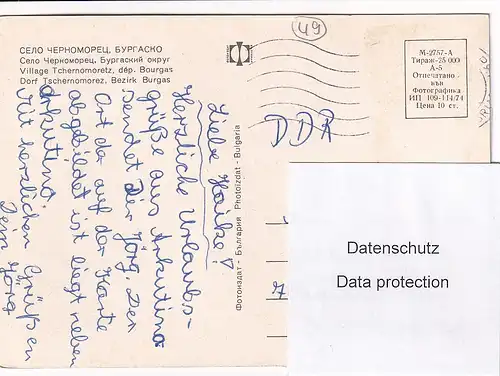 49
СЕЛО ЧЕРНОМОРЕЦ, БУРГАСКО
Село Черноморец, Бургаский округ
Village Tchernomoretz, dép. Bourgas
Dorf Tschernomorez, Bezirk Burgas
М-2757-А
Тираж-25 000
А-5
Отпечатано
във
Фотографика
ИП 109-114/74
Цена 10 ст.
Liebe Heike!
Herzliche Urlaubs-
grüße aus Arkutino
sendet Dir Jörg. Der
Ort der auf der Karte
abgebildet ist liegt neben
Arkutino.
Mit herzlichen Grüßen
Dein Jörg
Фотоиздат - България Photoizdat - Bulgaria
DDR
Datenschutz
Data protection